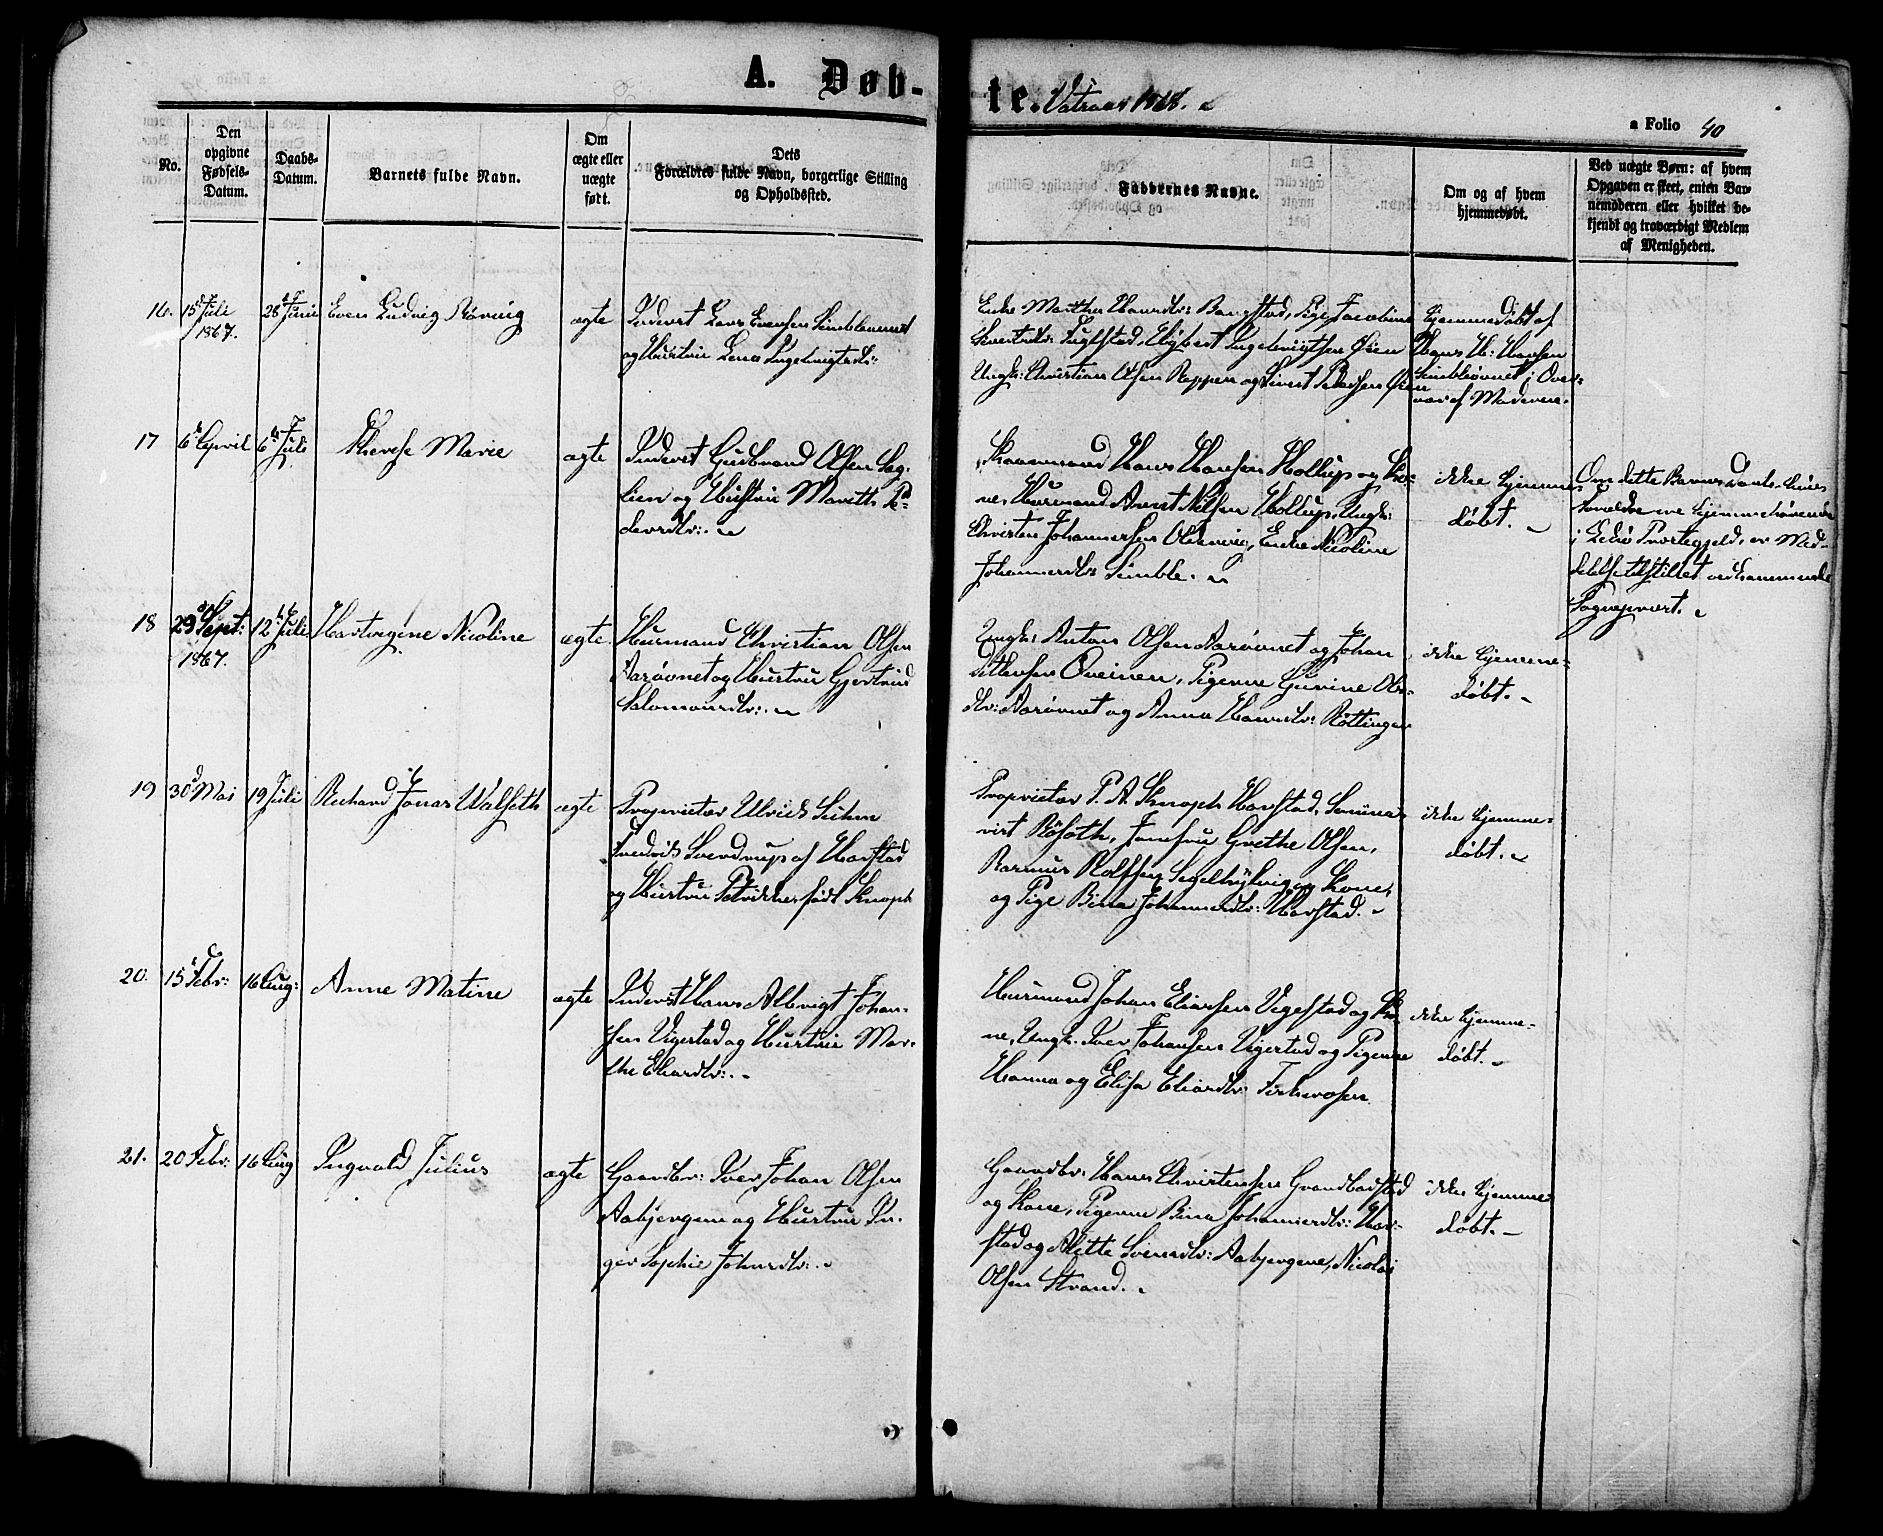 A. Døb-te. Vatnaas 1868.
a Folio 40
No.
Den opgivne Fødsels-Datum.
Daabs-Datum.
Barnets fulde Navn.
Om ægte eller uægte født.
Dets Forældres fulde Navn, borgerlige Stilling og Opholdssted.
Faddernes Navne.
Om og af hvem hjemmedøbt.
Ved uægte Børn: af hvem Opgaven er skeet, enten Barnemoderen eller hvilket bekjendt og troværdigt Medlem af Menigheden.
16. 15 Juli 1867. 28 Juni Even Ludvig Røvig
ægte
Inderst Lars Evensen
og Hustru Lena Ingebrigtsdtr:
Enke Martha Hansdtr: Bangstad, Pige Jacobine
Sivertsdtr: Fuglstad, Elgbert Ingebrigtsen Øien
Ungk: Christian Olsen Roppen og Sivert Pedersen Øien
hjemmedøbt af
Hans H: Hansen
i Over-
vær af Moderen.
17 6 April 6 Juli Therese Marie
ægte
Inderst Gudbrand Olsen Sag-
lien og Hustru Marith Pe-
dersdtr:
Kaarmand Hans Hansen Hollup og Ko-
ne, Huusmand Arnt Nilsen Hollup, Ungk:
Christen Johannessen, Enke Nicoline
Johannesdtr: Simble.
ikke hjemme-
døbt.
Om dette Barns Daab, hvis
Forældre ere hjemmehørende
i Præstegjeld, er Med-
delelse tilstillet vedkommende
Sognepræst.
18 29 Sept: 1867. 12 Juli Hartvigine Nicoline
ægte
Huusmand Christian Olsen
Aarøvnet og Hustru Gjertrud
Salomonsdtr:
Ungk: Anton Olsen Aarøvnet og Johan
Ditlevsen Qveinen, Pigerne Gurine Ols-
dtr: Aarøvnet og Anna Hansdtr: Røttingen
ikke hjemme-
døbt.
19 30 Mai 19 Juli Richard Jonas Walseth
ægte
Proprietær Ulrich Suhm
Fredrik Sverdrup af Havstad
og Hustru født Knoph
Proprietær P. A. Knoph Havstad, Semina-
rist Røsoth, Jomfru Grethe Olsen,
Rasmus Rolfsen og Kone,
og Pige Bina Johannesdtr: Havstad.
ikke hjemme-
døbt.
20. 15 Febr: 16 Aug: Anne Matine
ægte
Inderst Hans Albrigt Johan-
sen Vigestad og Hustru Mar-
the Eliasdtr:
Huusmand Johan Eliassen Vigestad og Ko-
ne, Ungk. Iver Johansen Vigestad og Pigerne
Hanna og Elisa Eliasdtr:
ikke hjemme-
døbt.
21. 20 Febr: 16 Aug Ingvald Julius
ægte
Gaardbr: Iver Johan Olsen
Aabjørgene og Hustru In-
ger Sophie Johnsdtr:
Gaardbr: Hans Christensen
og Kone, Pigerne Bina Johannesdtr: Hav-
stad og Alette Svensdtr: Aabjørgene, Nicolai
Olsen Strand.
ikke hjemme-
døbt.